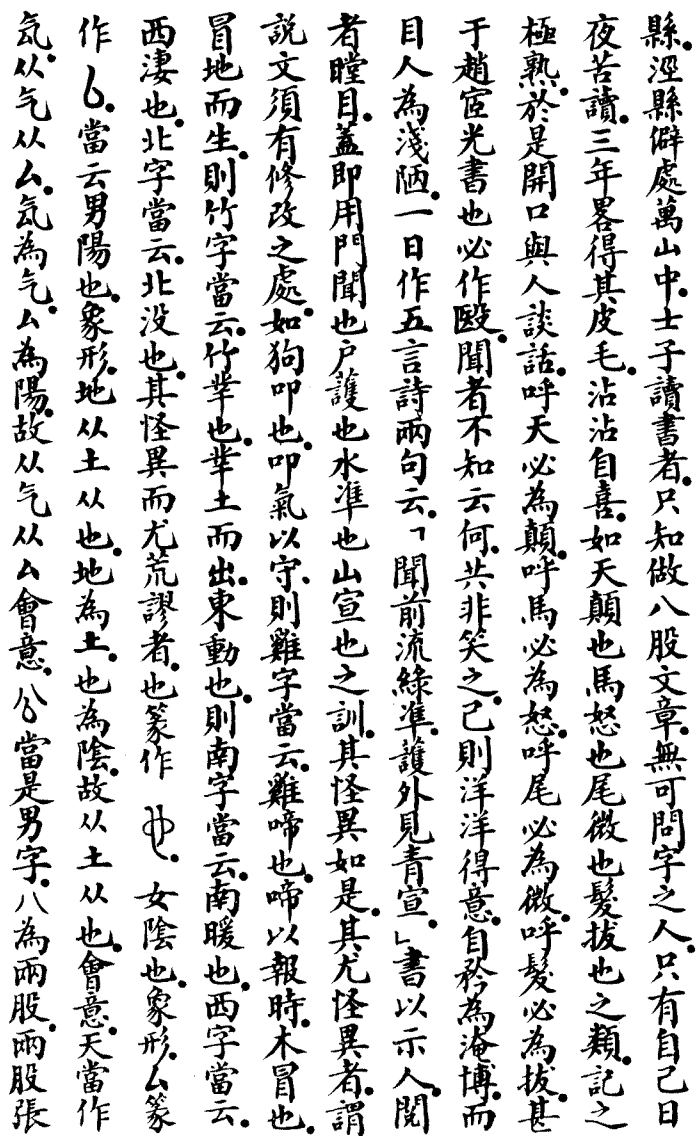 縣。涇縣僻處萬山中。士子讀書者。只知做八股文章。無可問字之人。只有自己日
夜苦讀。三年畧得其皮毛。沾沾自喜。如天顛也馬怒也尾微也髮拔也之類。記之
極熟。於是開口與人談話。呼天必為顛。呼馬必為怒。呼尾必為微。呼髮必為拔。甚
于趙宧光書也必作殹。聞者不知云何。共非笑之。己則洋洋得意。自矜為淹博。而
目人為淺陋。一日作五言詩兩句云。「聞前流綠準。護外見青宣。」書以示人。閱
者瞠目。蓋即用門聞也戶護也水準也山宣也之訓。其怪異如是。其尤怪異者。謂
說文須有修改之處。如狗叩也。叩氣以守。則雞字當云。雞啼也。啼以報時。木冒也。
冒地而生。則竹字當云。竹芈也。芈土而出。東動也。則南字當云。南暖也。西字當云。
西淒也。北字當云。北没也。其怪異而尤荒謬者。也篆作。女陰也。象形。厶篆
作。當云男陽也。象形。地从土从也。地為土。也為陰。故从土从也。會意。天當作
氖。从气从厶。氖為气。厶為陽。故从气从厶會意。㕣當是男字。八為兩股。兩股張